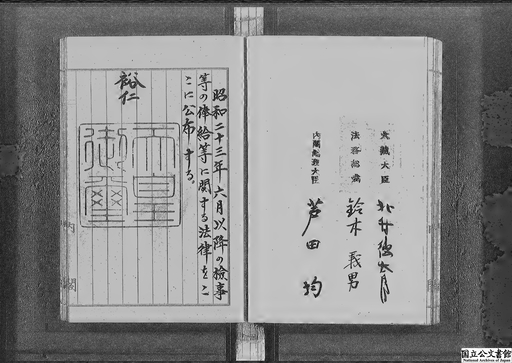 昭和二十三年六月以降の檢事
等の俸給等に関する法律をこ
こに公布する。
裕仁
天皇
御璽
内閣
大藏大臣
北村徳太郎
法務総裁
鈴木義男
内閣総理大臣
芦田均
国立公文書館
National Archives of Japan